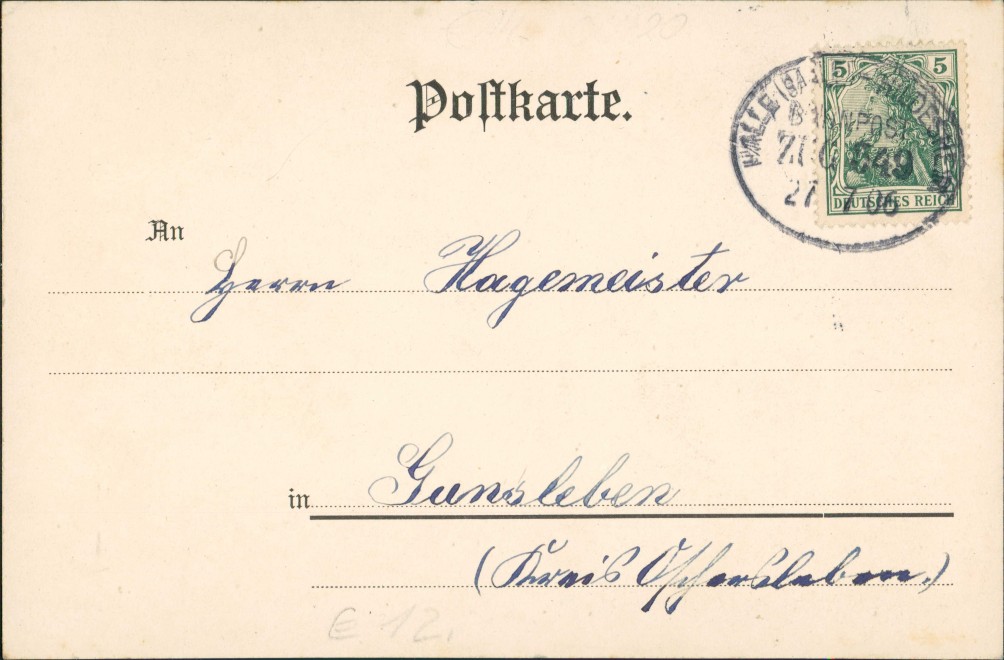 Postkarte.
5 5
DEUTSCHES REICH
HALLE (SAALE)
BAHNPOST
ZUG 249
27 7 06
An
Herrn Hagemeister
in Gunsleben
(Kreis Oschersleben.)
€ 12.